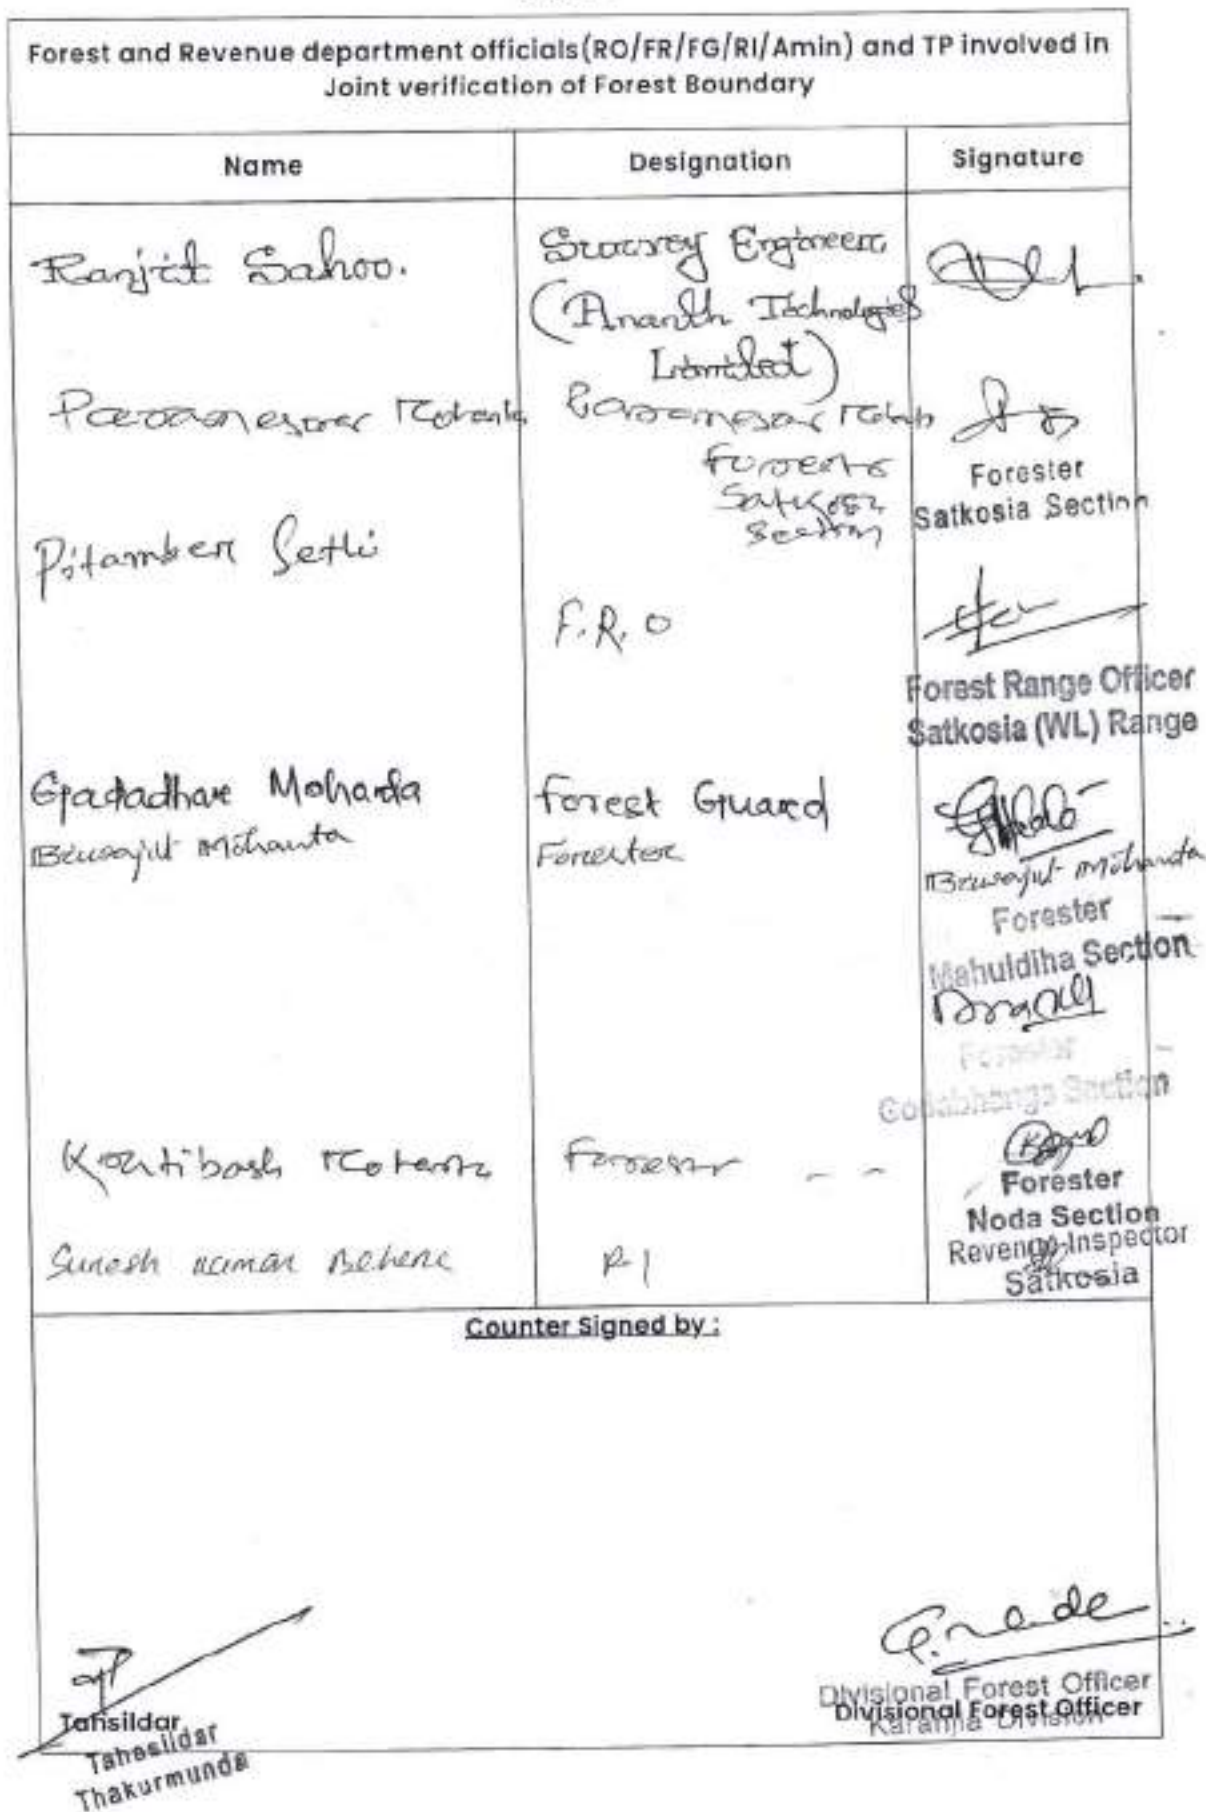 Forest and Revenue department officials(RO/FR/FG/RI/Amin) and TP involved in
Joint verification of Forest Boundary
Name Designation Signature
Ranjit Sahoo. Survey Engineer
(Ananth Technologies
Limited)
Forester
Satkosia
Section
Forester
Satkosia Section
Pitamber Sethi
F.R.O
Forest Range Officer
Satkosia (WL) Range
Gadadhar Mohanta Forest Guard
Biswajit Mohanta Forester Biswajit Mohanta
Forester
Mahuldiha Section
Forester
Godabhanga Section
Forester
Forester
Noda Section
Suresh kumar Behera R.I
Revenue Inspector
Satkosia
Counter Signed by :
Tahsildar
Tahasildar
Thakurmunda
Divisional Forest Officer
Divisional Forest Officer
Karanjia Division